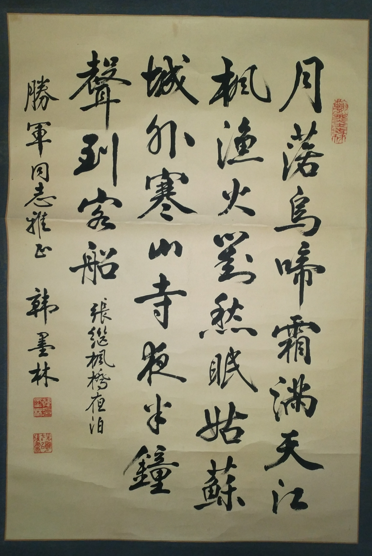 月落烏啼霜滿天江
楓漁火對愁眠姑蘇
城外寒山寺夜半鐘
聲到客船
張繼楓橋夜泊
勝軍同志雅正
韩墨林